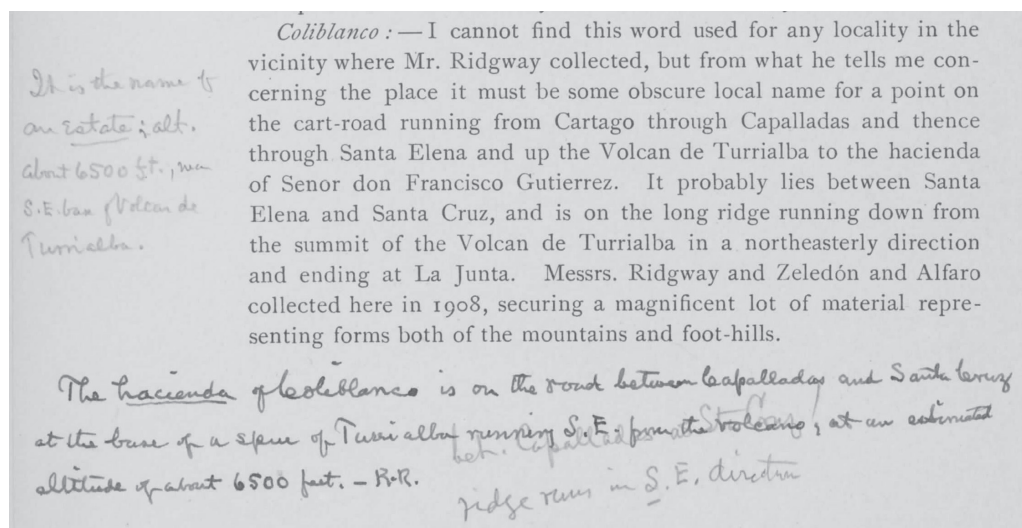 Coliblanco : — I cannot find this word used for any locality in the
vicinity where Mr. Ridgway collected, but from what he tells me con-
cerning the place it must be some obscure local name for a point on
the cart-road running from Cartago through Capalladas and thence
through Santa Elena and up the Volcan de Turrialba to the hacienda
of Senor don Francisco Gutierrez. It probably lies between Santa
Elena and Santa Cruz, and is on the long ridge running down from
the summit of the Volcan de Turrialba in a northeasterly direction
and ending at La Junta. Messrs. Ridgway and Zeledón and Alfaro
collected here in 1908, securing a magnificent lot of material repre-
senting forms both of the mountains and foot-hills.
It is the name of
an estate; alt.
about 6500 ft., near
S.E. base of Volcan de
Turrialba.
The hacienda of Coliblanco is on the road between Capalladas and Santa Cruz
at the base of a spur of Turrialba running S.E. from the volcano, at an estimated
altitude of about 6500 feet. – R.R.
bet. Capalladas Sta Cruz
ridge runs in S.E. direction